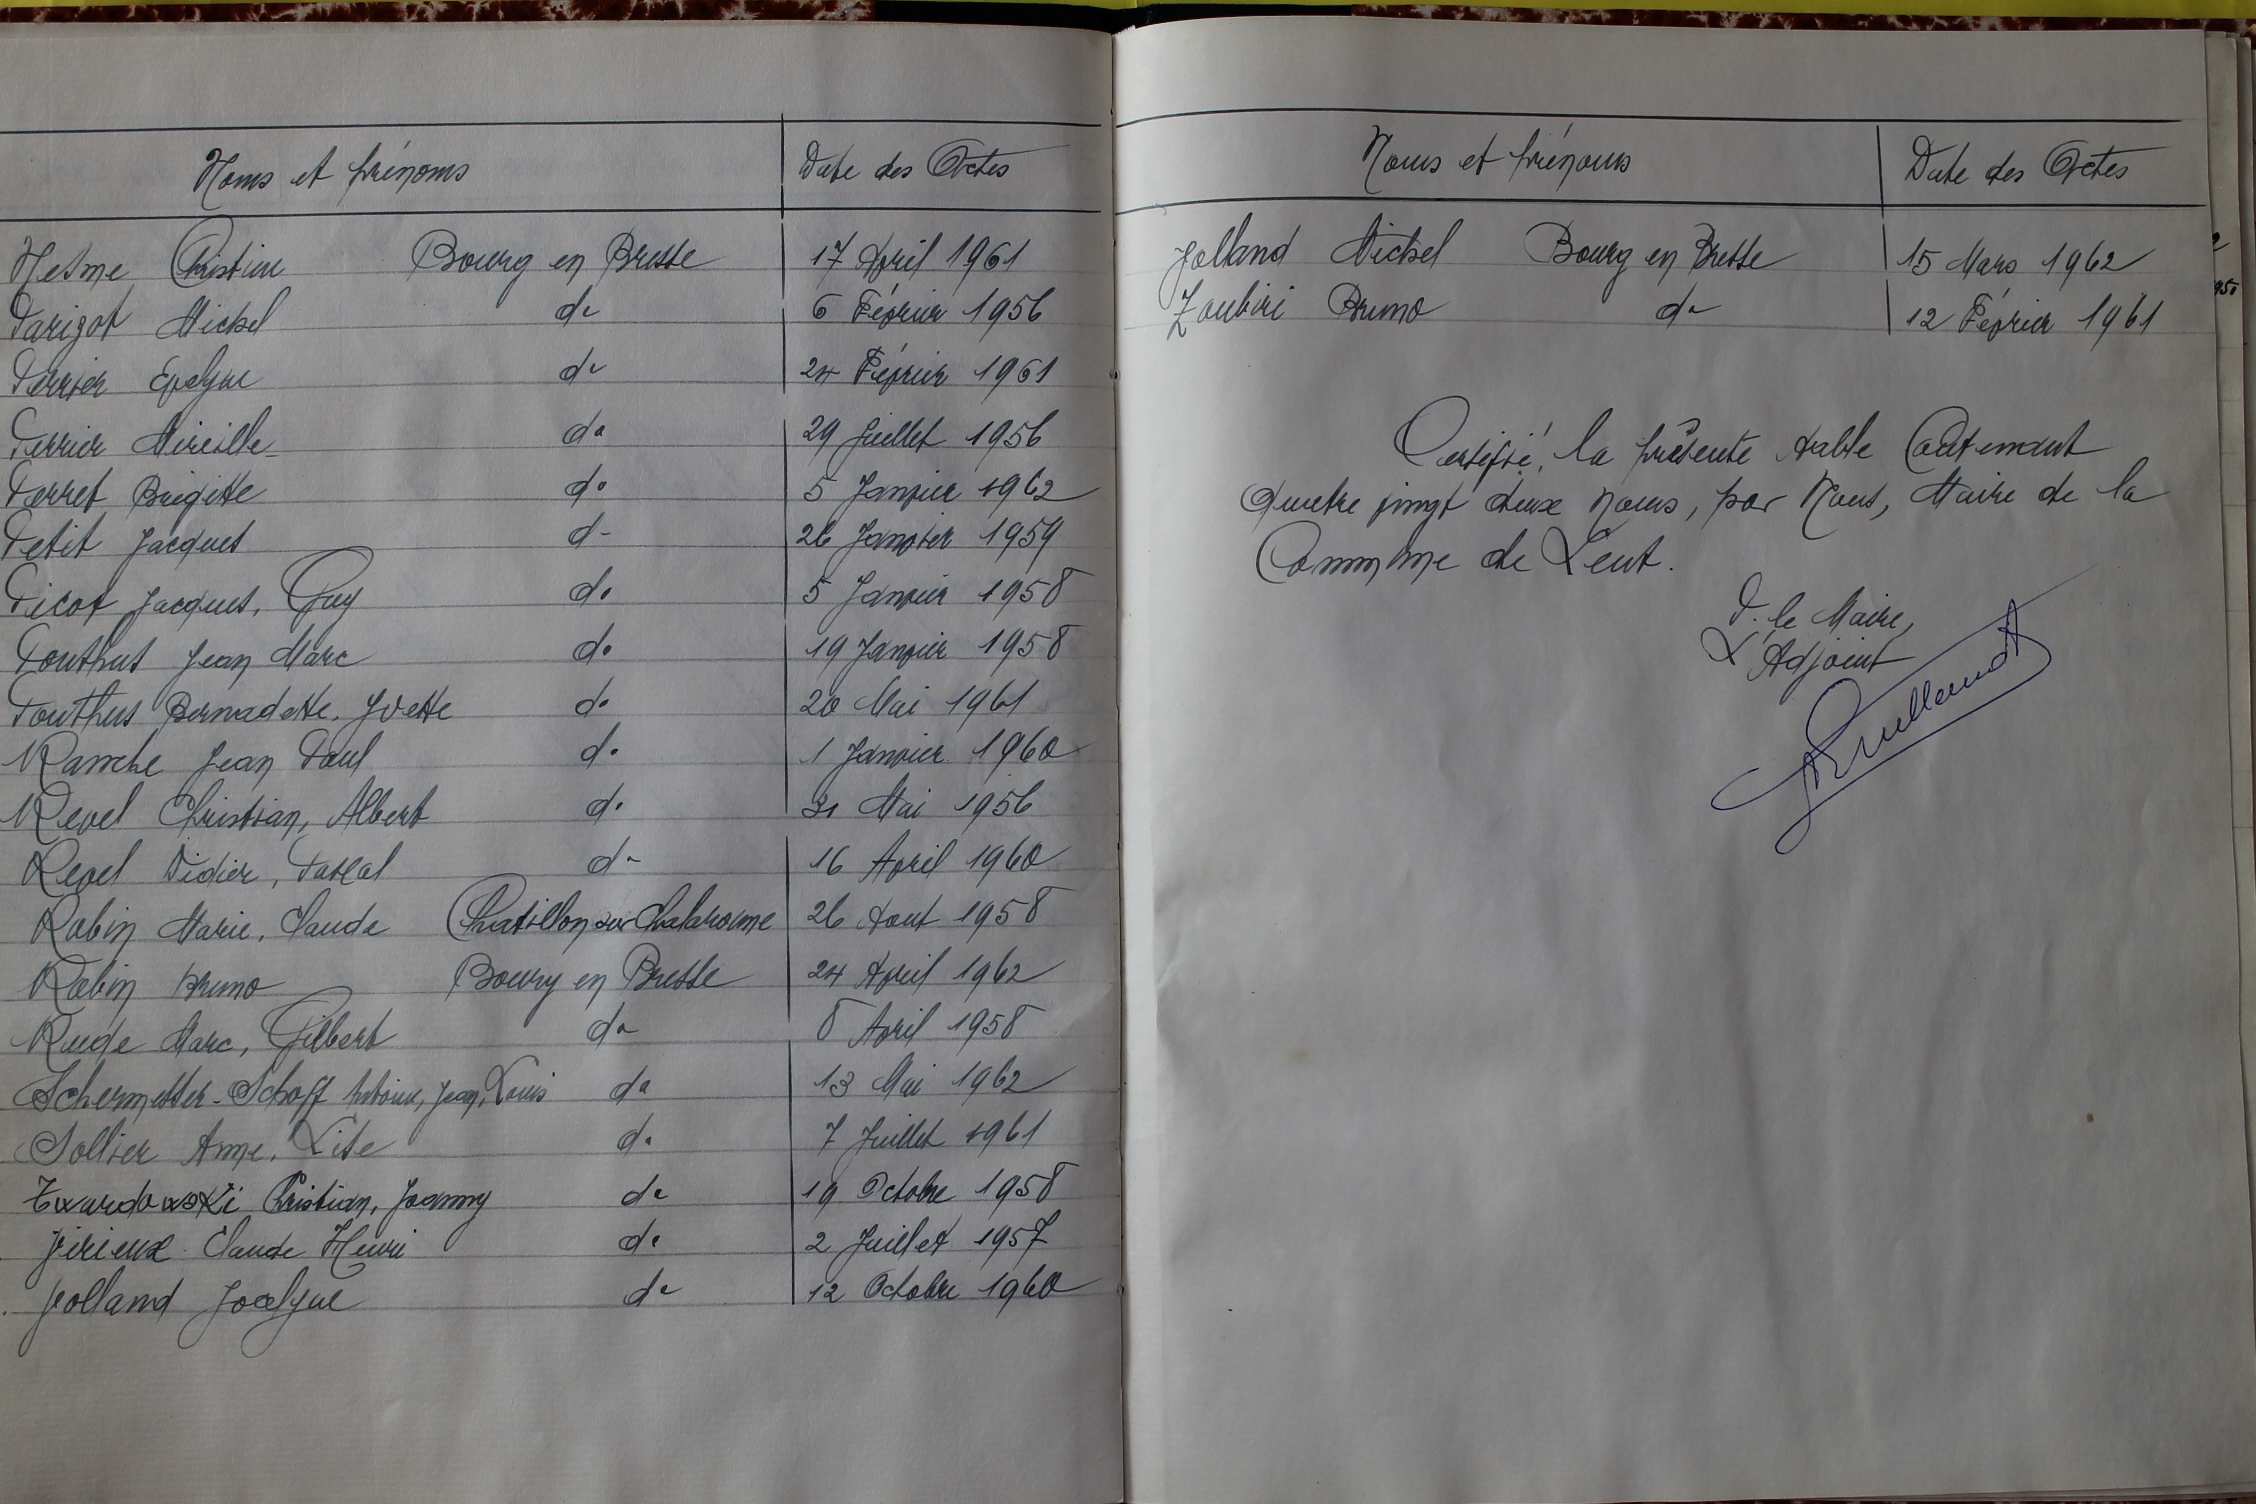 Noms et prénoms Date des Actes
Nesme Christine Bourg en Bresse 17 Avril 1961
Parigot Michel do 6 Février 1956
Perrier Evelyne do 24 Février 1961
Perrier Mireille do 29 Juillet 1956
Perret Brigitte do 5 Janvier 1962
Petit Jacques do 26 Janvier 1959
Picot Jacques, Guy do 5 Janvier 1958
Pouthus Jean Marc do 19 Janvier 1958
Pouthus Bernadette, Yvette do 20 Mai 1961
Ranche Jean Paul do 1 Janvier 1960
Revel Christian, Albert do 31 Mai 1956
Revel Didier, Pascal do 16 Avril 1960
Robin Marie, Claude Chatillon sur Chalaronne 26 Aout 1958
Robin Bruno Bourg en Bresse 24 Avril 1962
Rude Marc, Gilbert do 8 Avril 1958
Schermesser-Schoff Antoine, Jean, Louis do 13 Mai 1962
Sollier Anne, Lise do 7 Juillet 1961
Twardowski Christian, Joanny do 19 Octobre 1958
Virieux Claude Henri do 2 Juillet 1957
Volland Jocelyne do 12 Octobre 1960
Noms et prénoms Date des Actes
Volland Michel Bourg en Bresse 15 Mars 1962
Zoubiri Bruno do 12 Février 1961
Certifié, la présente table Contenant
Quatre vingt deux noms, par Nous, Maire de la
Commune de Lent.
P. le Maire,
L'Adjoint